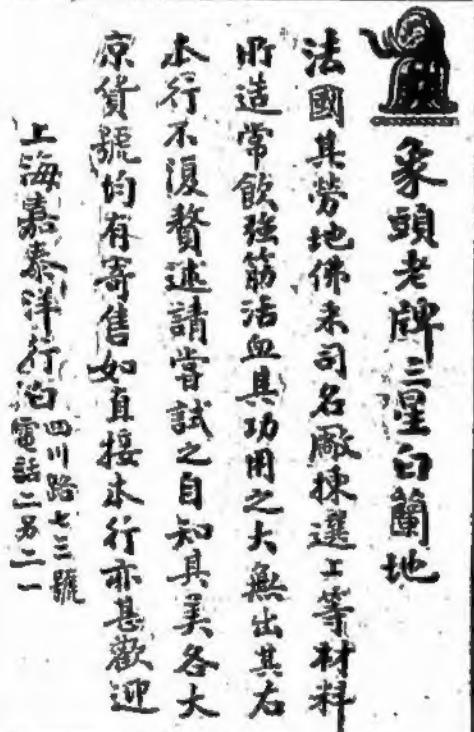 象頭老牌三星白蘭地
法國其勞地佛未司名廠揀選上等材料
所造常飲強筋活血其功用之大無出其右
本行不復贅述請嘗試之自知其美各大
京貨號均有寄售如直接本行亦甚歡迎
上海嘉泰洋行白
四川路七三號
電話二另二一